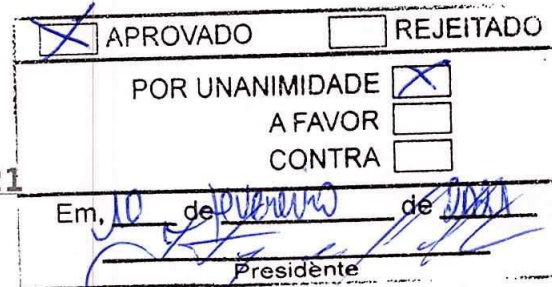 APROVADO REJEITADO
POR UNANIMIDADE
A FAVOR
CONTRA
Em, 10 de fevereiro de
Presidente